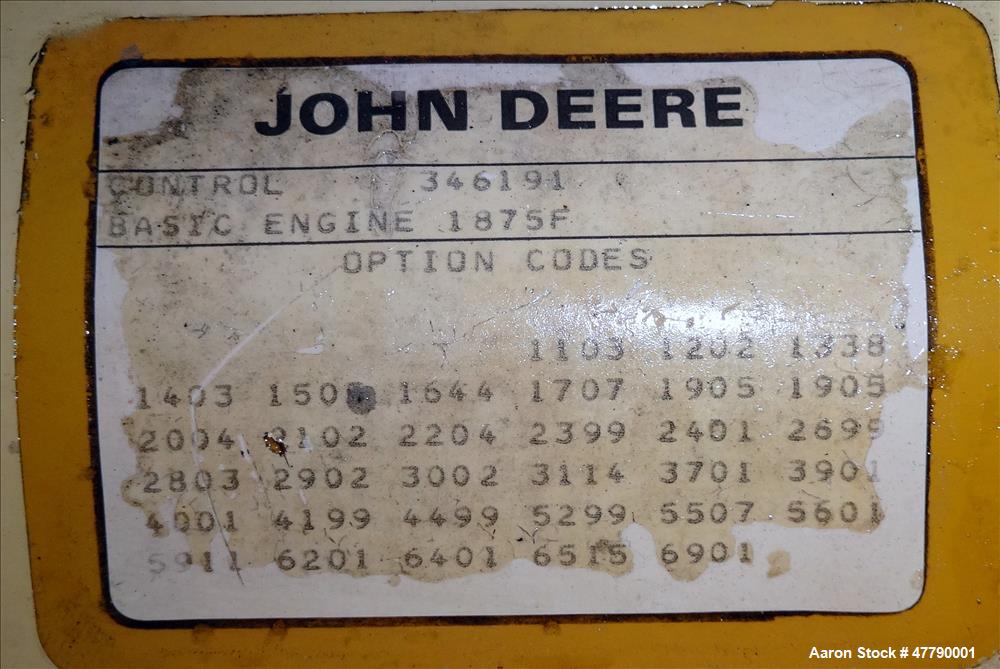 JOHN DEERE
CONTROL 346191
BASIC ENGINE 1875F
OPTION CODES
1103 1202 1338
1403 1644 1707 1905 1905
2004 2102 2204 2399 2401 2699
2803 2902 3002 3114 3701 3901
4001 4199 4499 5299 5507 5601
5911 6201 6401 6515 6901
Aaron Stock # 47790001